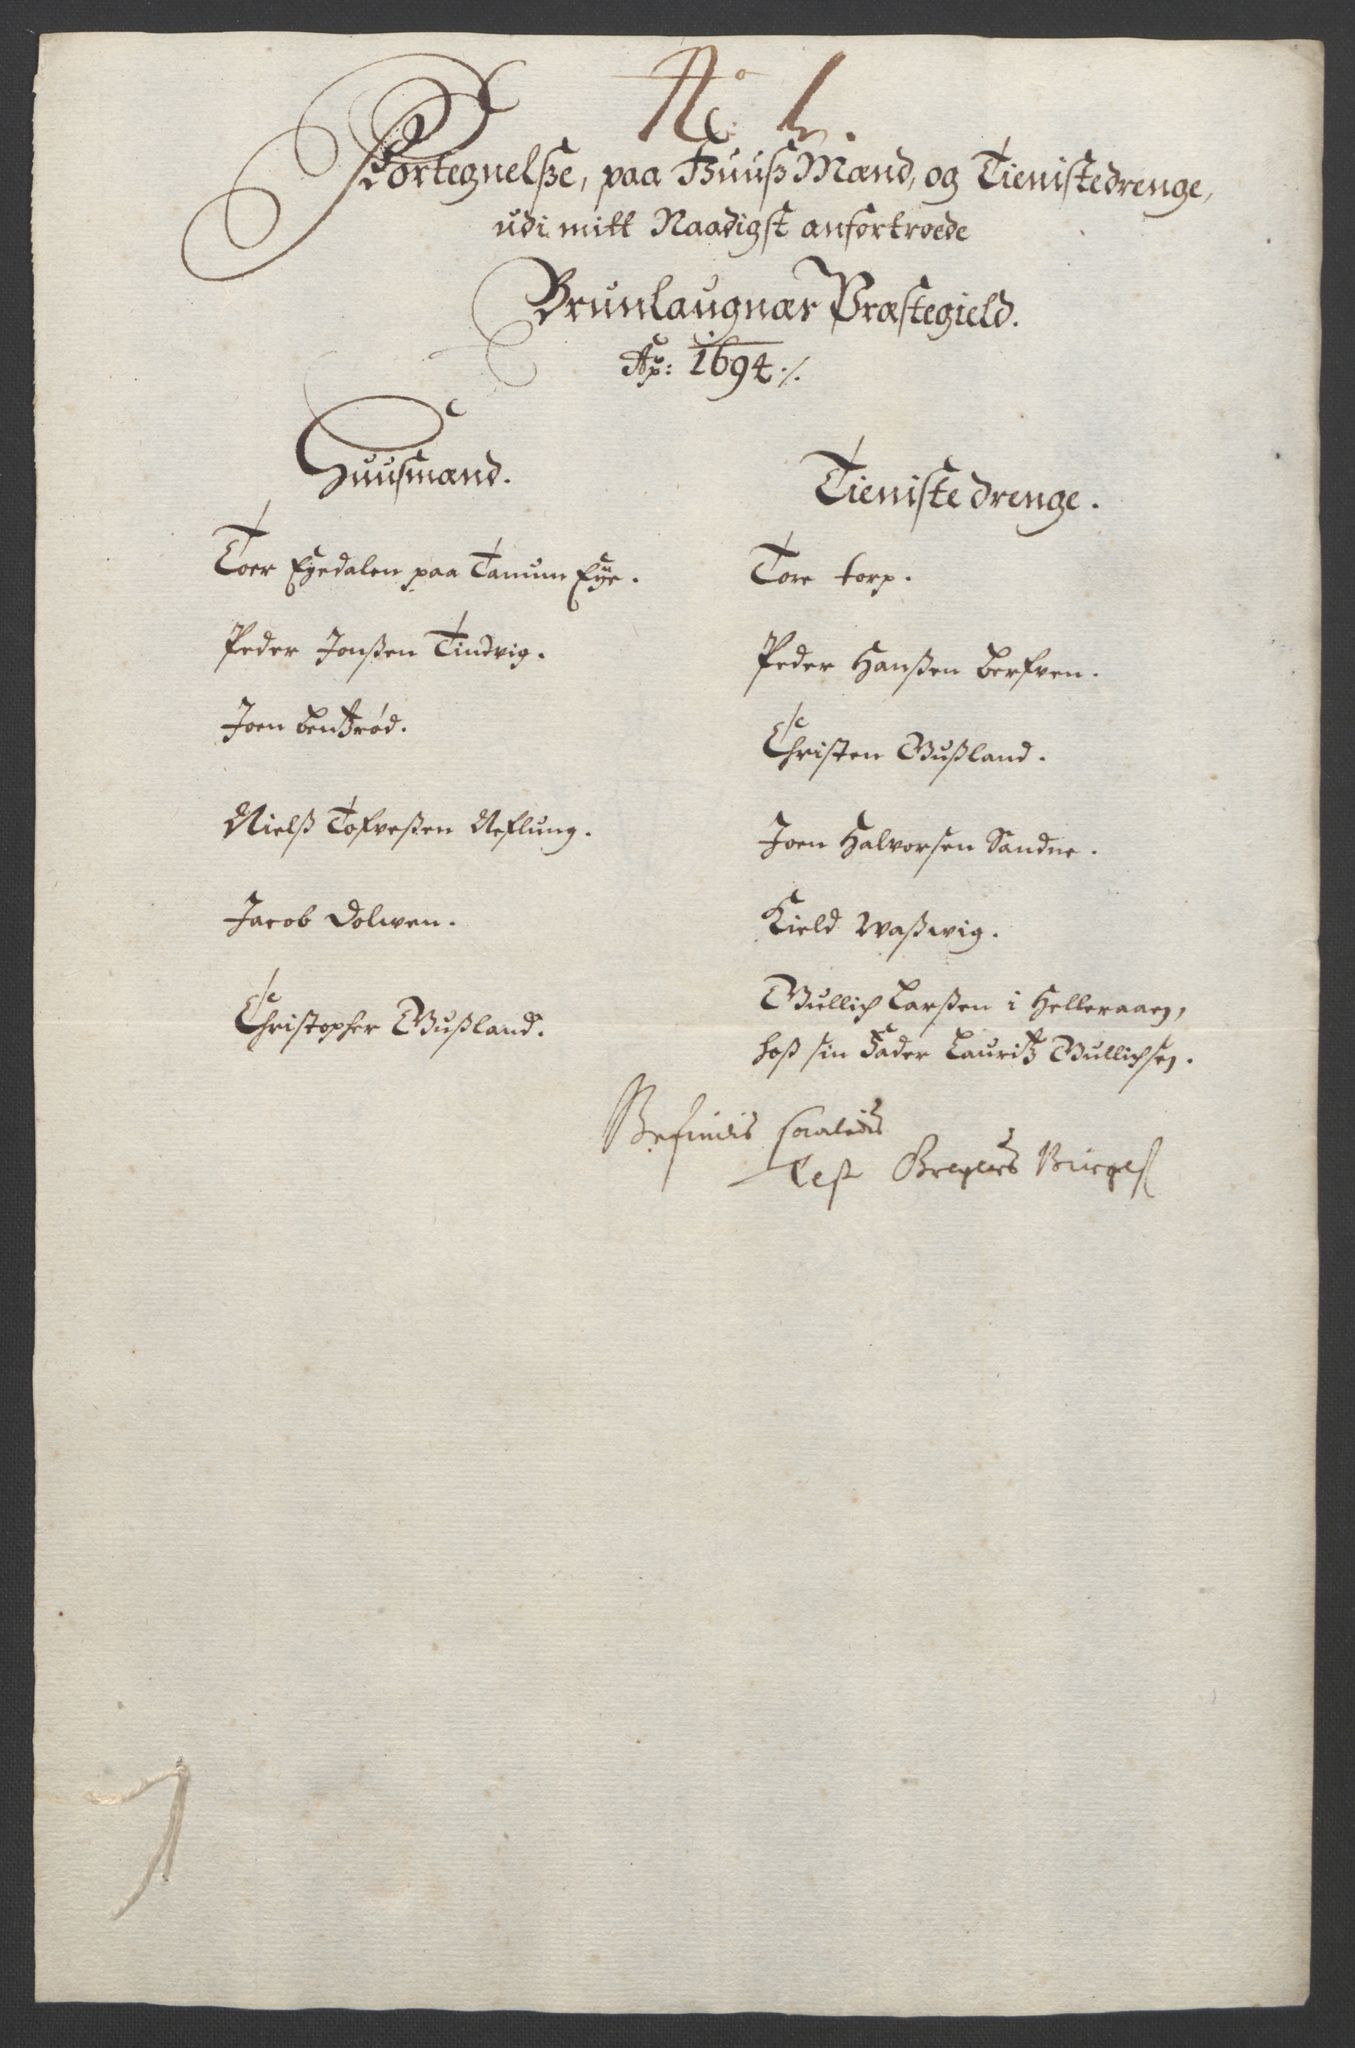 No 1.
Fortegnelsse, paa Huuss Mænd, og Tienistedrenge,
udi mitt Naadigst anfortroede
Brunlaugnær Præstegield.
Ao: 1694 ./.
Huusmænd.
Toer Eyedalen paa Tanum Eye.
Peder Jonssen Tindvig.
Joen Bentzrød.
Nielss Tofvessen Neflung.
Jacob Dolwen.
Christopher Gussland.
Tienistedrenge.
Tore torp.
Peder Hanssen Berfven.
Christen Gussland.
Joen Halvorsen Sandne.
Kield Wasswig.
Gullich Larssen i Helleraaen,
hoss sin Fader Lauritz Gullichsen.
Befindis saaledis
Test